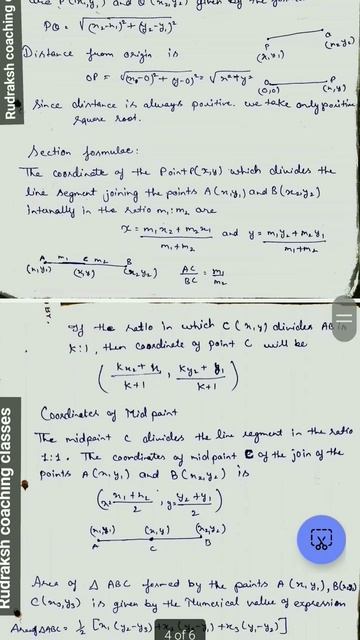 PQ = √(x₂-x₁)² + (y₂-y₁)²
Distance from origin is
OP = √(x-0)² + (y-0)² = √x²+y²
P
(x,y,)
Q
(x₂y₂)
O
(0,0)
P
(x,y)
Since distance is always positive. we take only positive
square root.
Section formulae:
The coordinate of the Point P(x,y) which divides the
line segment joining the points A(x,y,) and B(x₂,y₂)
intanally in the ratio m₁:m₂ are
x = m₁x₂ + m₂x₁ / m₁+m₂ and y = m₁y₂ + m₂y₁ / m₁+m₂
A m₁ C m₂ B
(x,y,) (x,y) (x₂y₂)
AC/BC = m₁/m₂
If the ratio in which C(x,y) divides AB is
k:1, then coordinate of point C will be
(kx₂ + x₁ / k+1 , ky₂ + y₁ / k+1)
Coordinates of Midpoint
The midpoint C divides the line segment in the ratio
1:1. The coordinates of midpoint C of the join of the
points A(x,y,) and B(x₂,y₂) is
(x = x₁+x₂ / 2 , y = y₂+y₁ / 2)
(x,y,) (x,y) (x₂,y₂)
A C B
Area of Δ ABC formed by the points A(x,y,), B(x₂y₂)
C(x₃,y₃) is given by the Numerical value of expression
Area of ΔABC = ½ [x₁(y₂-y₃) + x₂(y₃-y₁) + x₃(y₁-y₂)]
4 of 6
Rudraksh coaching
Rudraksh coaching classes